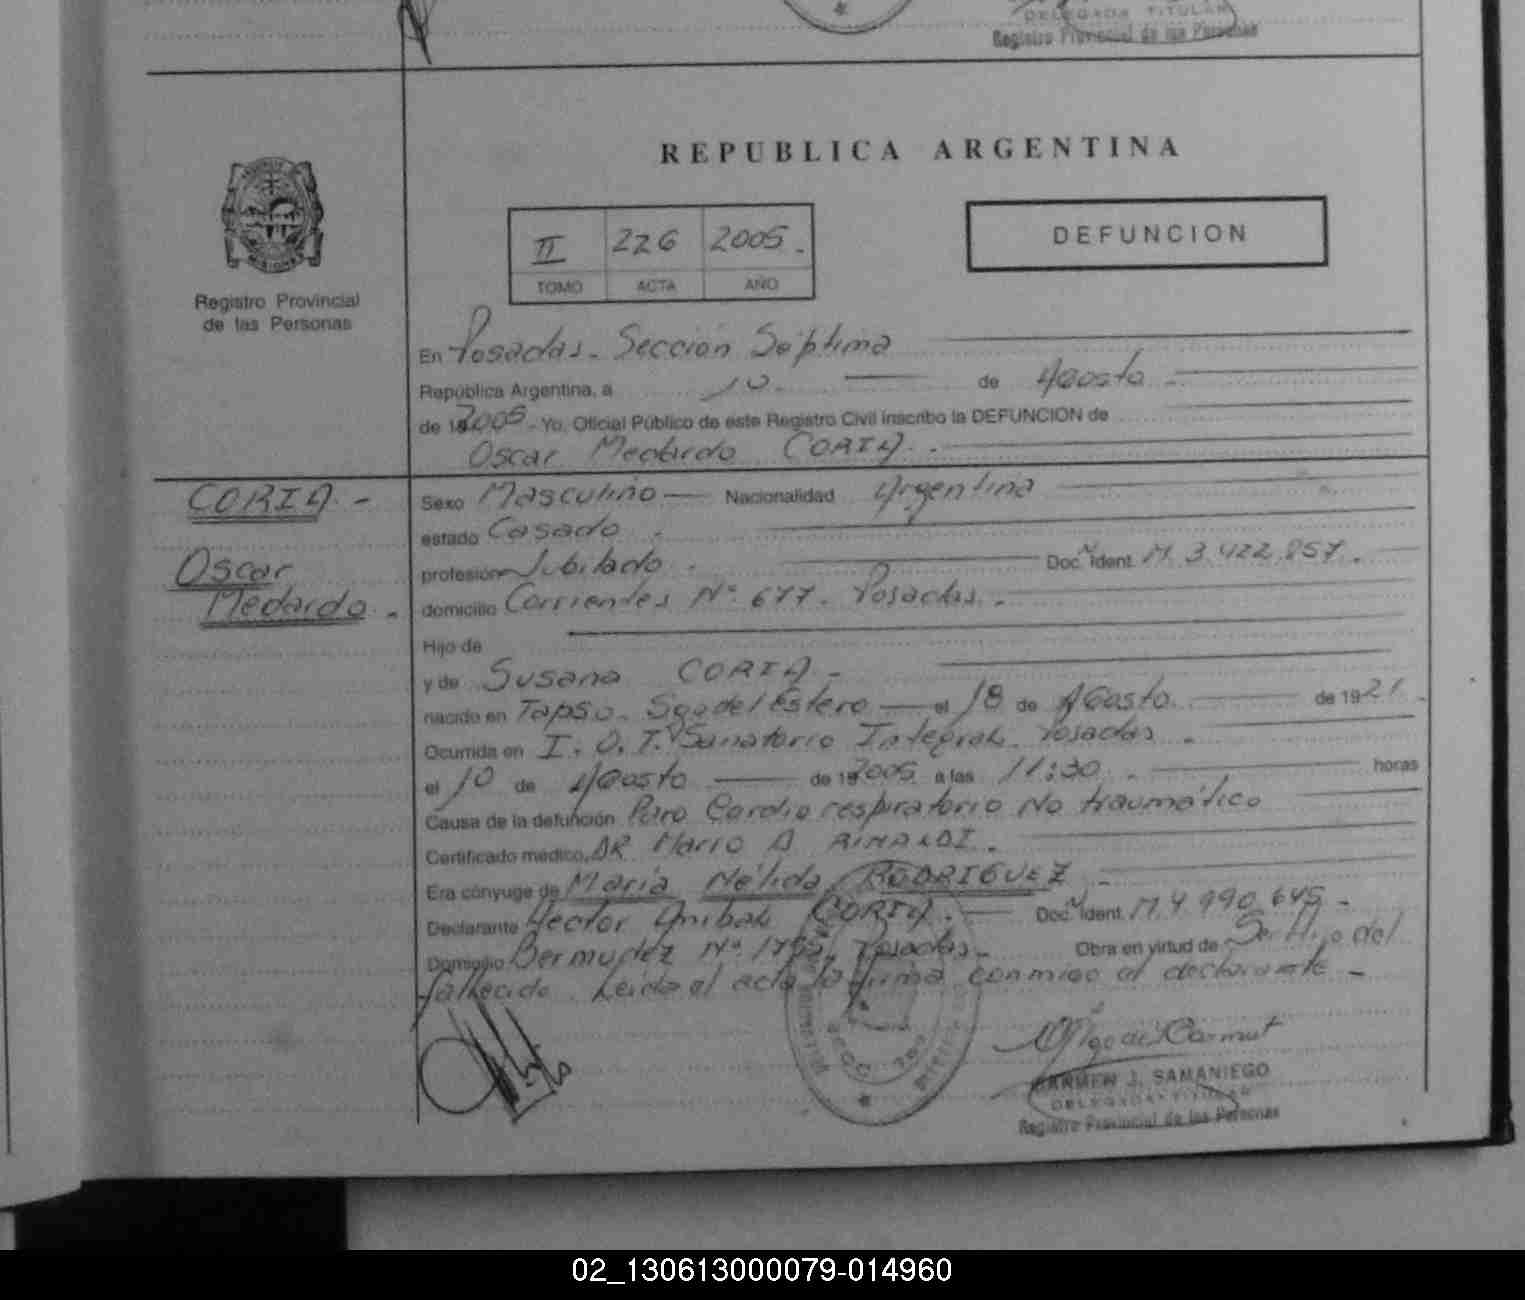 DELEGADA TITULAR
Registro Provincial de las Personas
REPUBLICA ARGENTINA
MISIONES
Registro Provincial
de las Personas
II 226 2005.-
TOMO ACTA AÑO
DEFUNCION
En Posadas. Sección Séptima
República Argentina, a 10. de Agosto.
de 19 2005 - Yo, Oficial Público de este Registro Civil inscribo la DEFUNCION de
Oscar Medardo CORIA.
CORIA -
Oscar
Medardo. -
Sexo Masculino - Nacionalidad Argentina
estado Casado.
profesión Jubilado. Doc. Ident. M. 3.422.857.
domicilio Corrientes Nº 677. Posadas.
Hijo de
y de Susana CORIA.
nacido en Tapso. Sgo del Estero el 18 de Agosto. de 1921.
Ocurrida en I.O.T. Sanatorio Integral. Posadas.
el 10 de Agosto de 19 2005 a las 11:30. horas
Causa de la defunción Paro Cardio respiratorio No traumático
Certificado médico DR Mario A RINALDI.
Era cónyuge de María Nélida RODRIGUEZ
Declarante Hector Anibal CORIA. Doc. Ident. M. 4.990.645.
Domicilio Bermudez Nº Posadas. Obra en virtud de Ser Hijo del
fallecido. Leida el acta la firma conmigo el declarante -
CARMEN J. SAMANIEGO
DELEGADA TITULAR
Registro Provincial de las Personas
02_130613000079-014960